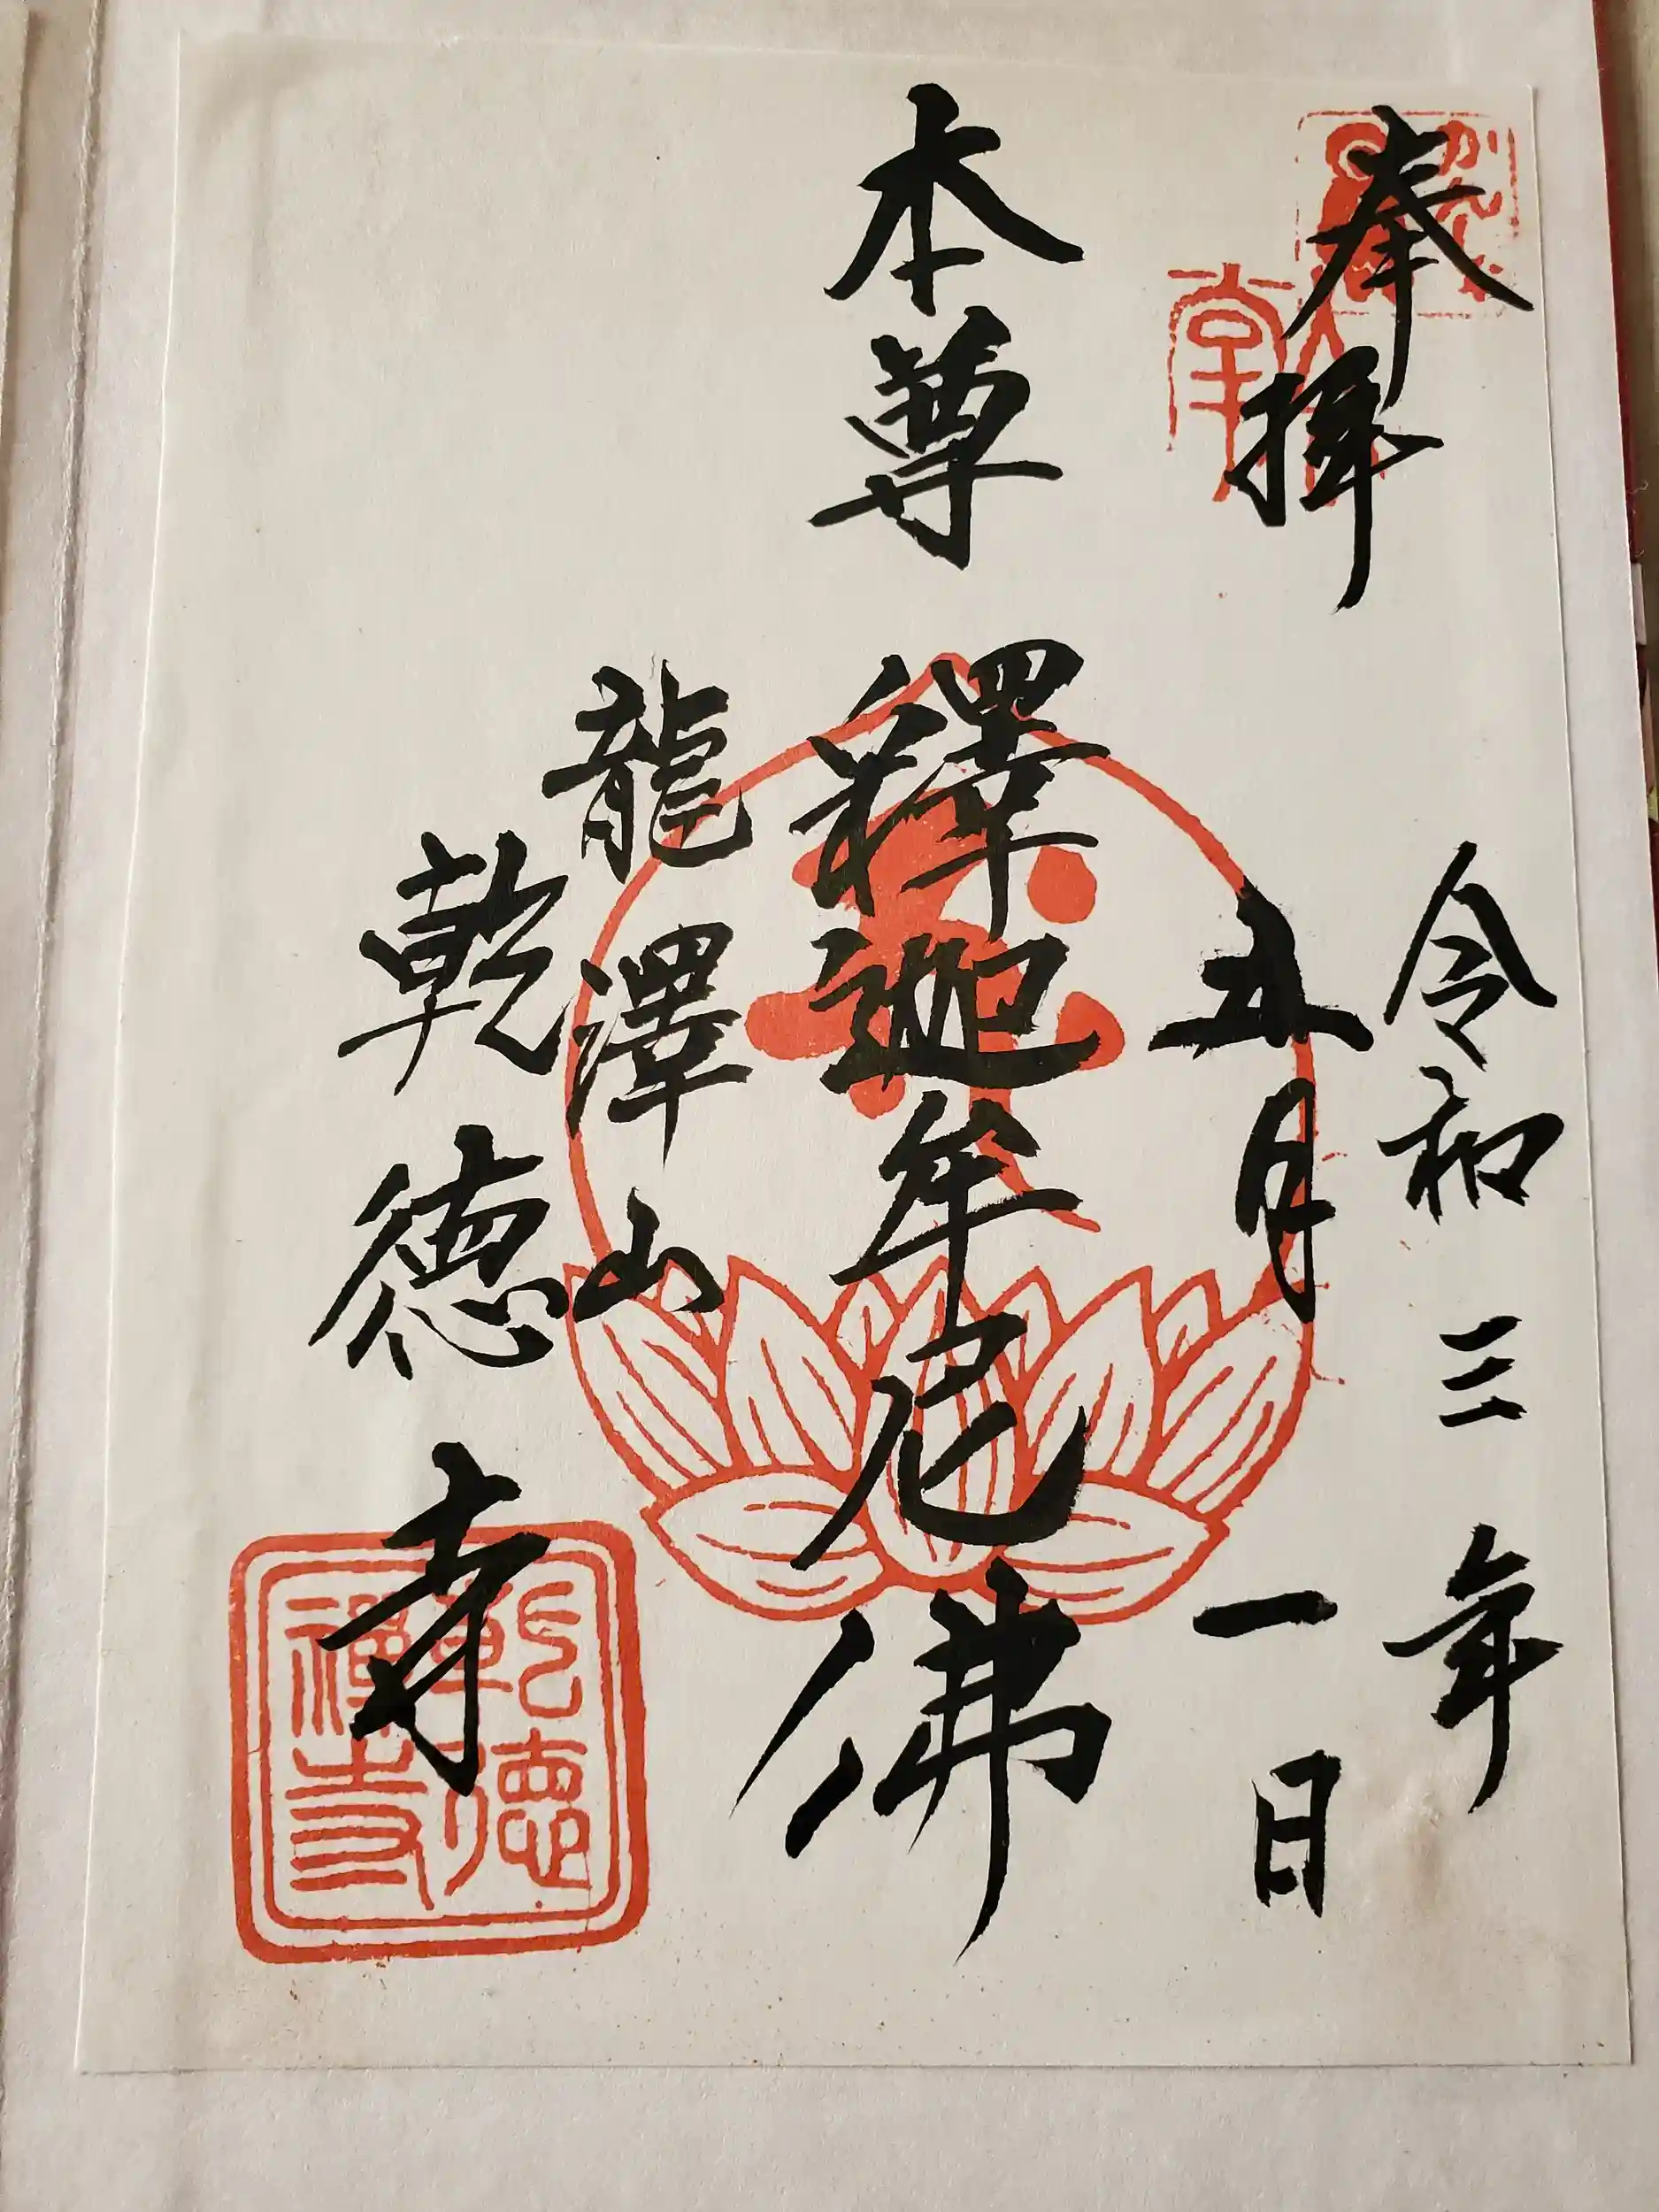 奉拝
令和三年
五月一日
本尊 釋迦牟尼佛
龍澤山
乾徳寺
乾徳
禅寺